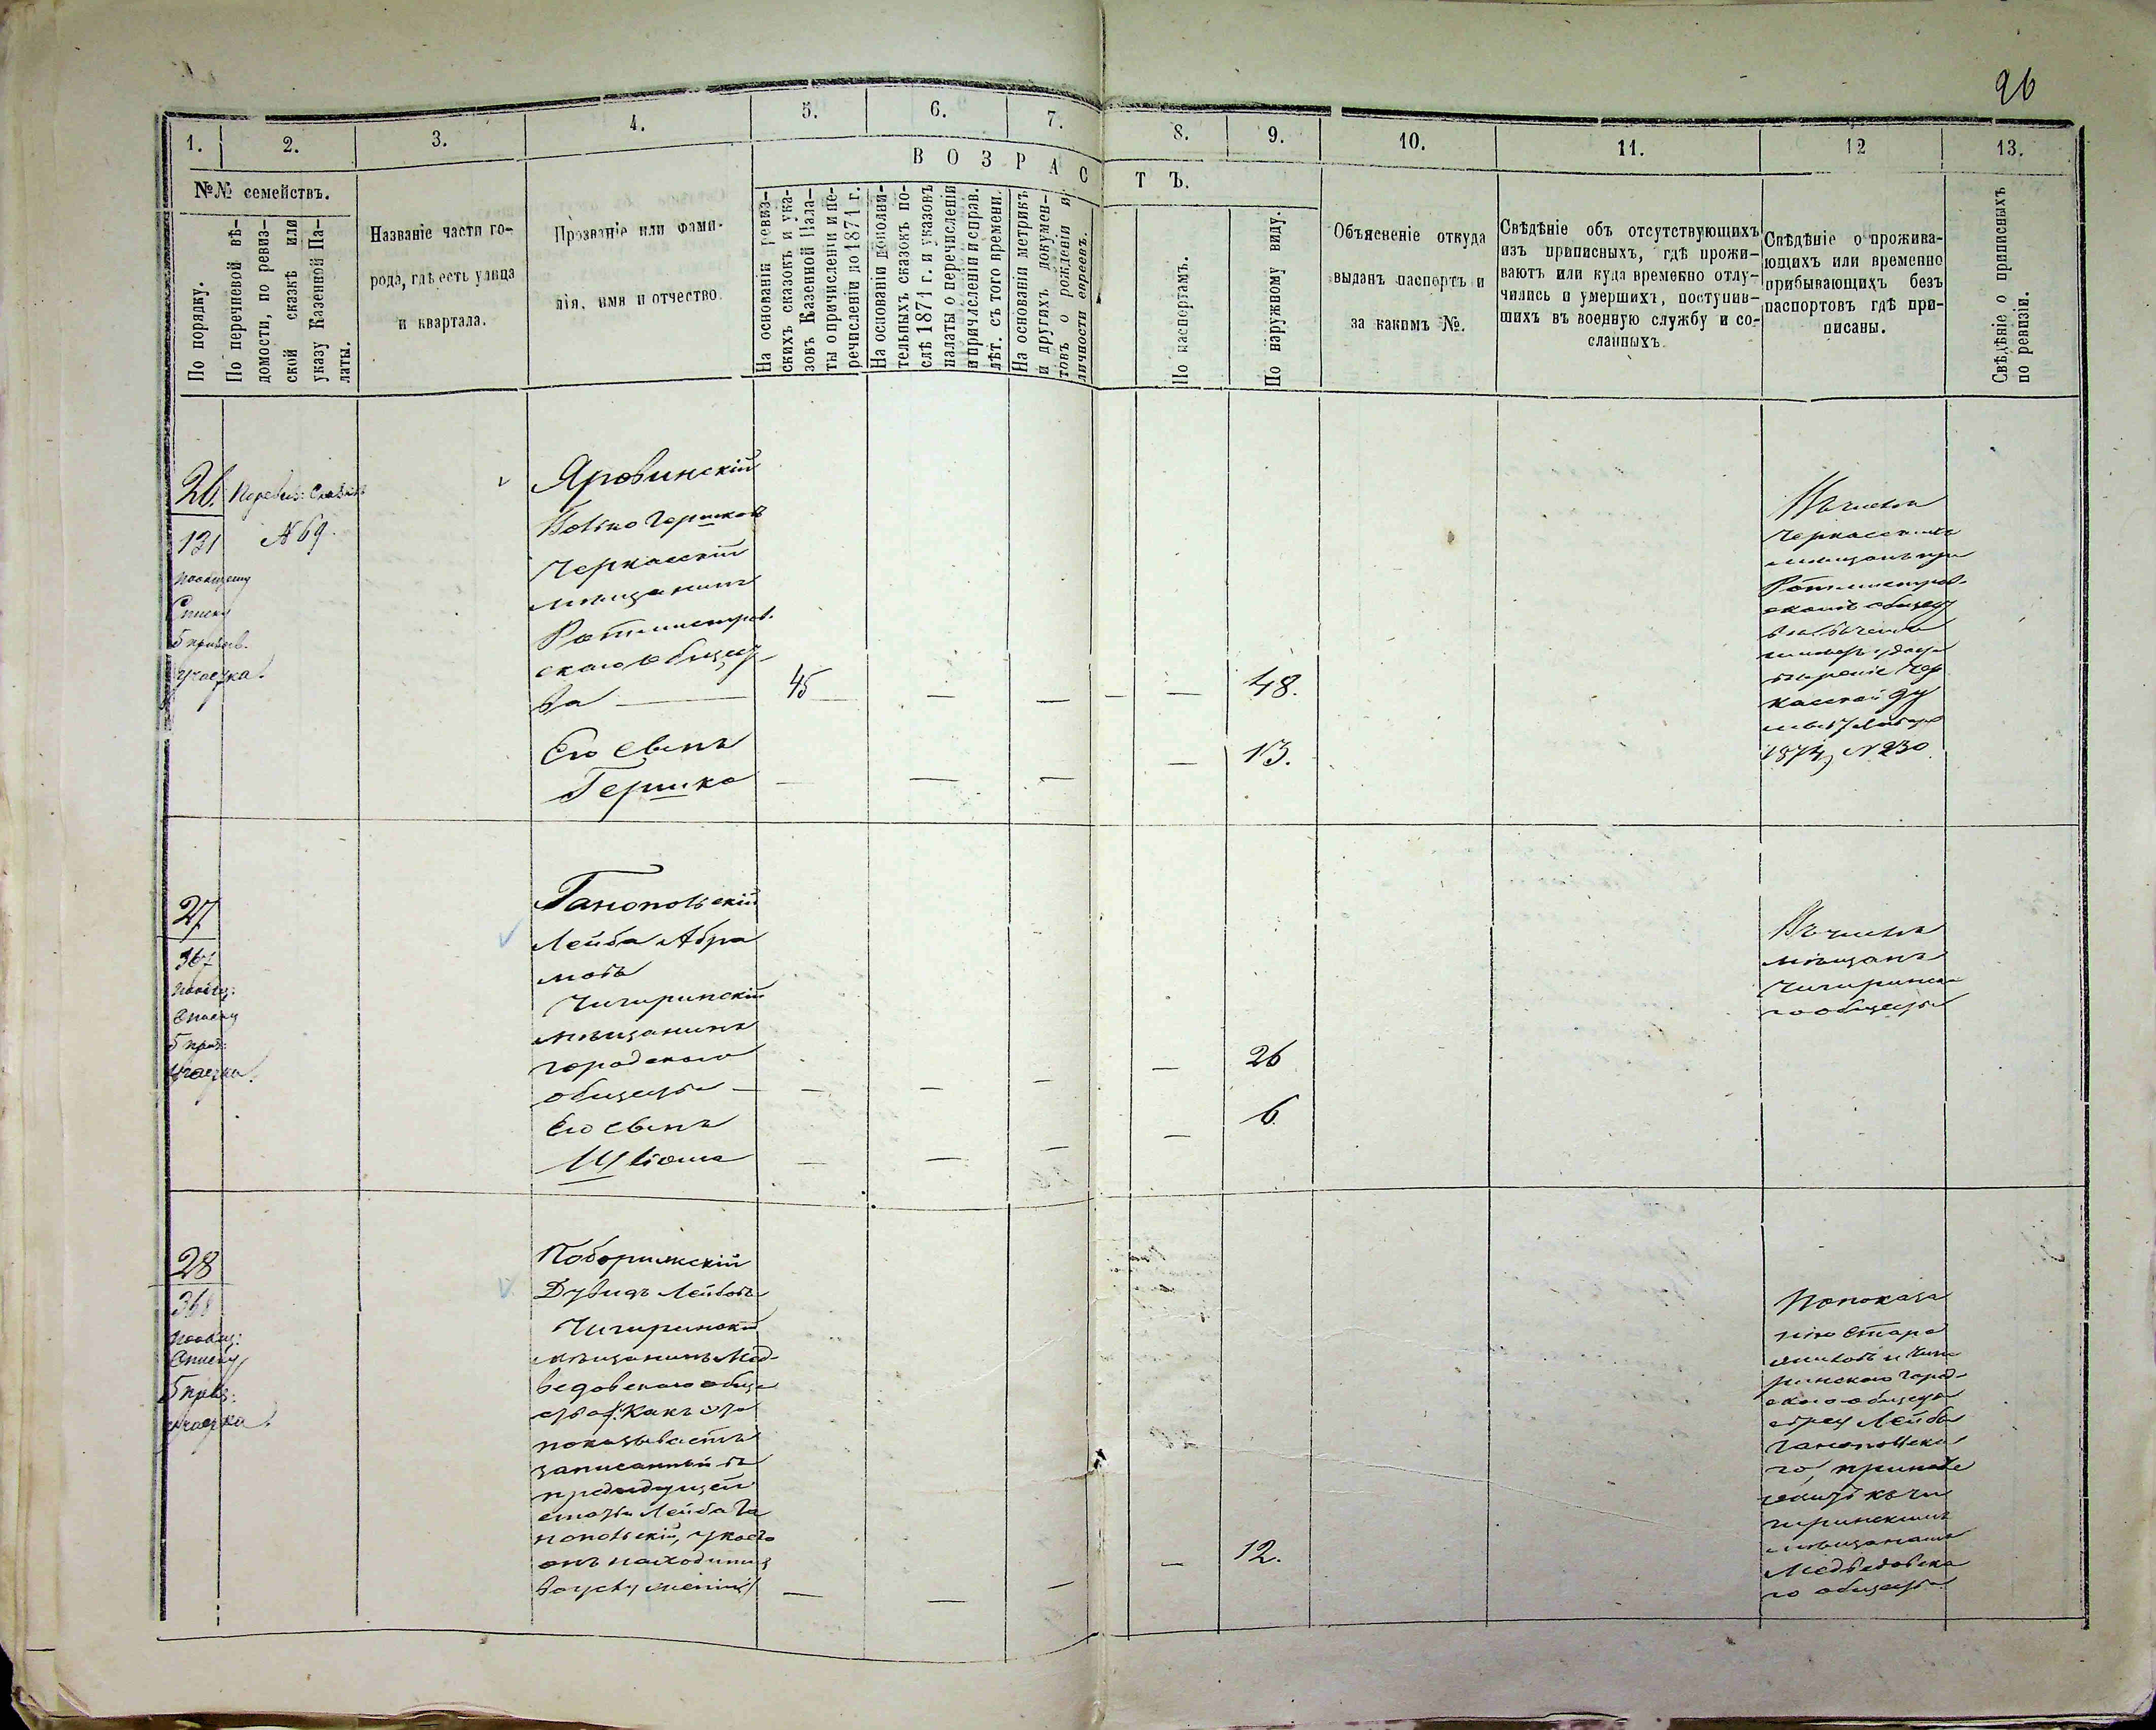 96
1. 2. 3. 4. 5. 6. 7. 8. 9. 10. 11. 12 13.
№№ семействъ.
По порядку.
По перечневой вѣ-
домости, по ревиз-
ской сказкѣ или
указу Казенной Па-
латы.
Названіе части го-
рода, гдѣ есть улица
и квартала.
Прозваніе или фами-
лія, имя и отчество.
ВОЗРАСТЪ.
На основаніи ревиз-
скихъ сказокъ и ука-
зовъ Казенной Пала-
ты о причислени и пе-
речисленіи до 1871 г.
На основаніи дополни-
тельныхъ сказокъ по-
слѣ 1871 г. и указовъ
палаты о перечисленіи
и причлсленіи и справ.
лѣт. съ того времени.
На основаніи метрикъ
и другихъ докумен-
товъ о рожденіи и
личности евреевъ.
По паспортамъ.
По наружному виду.
Объясненіе откуда
выданъ паспортъ и
за какимъ №.
Свѣдѣніе объ отсутствующихъ
изъ приписныхъ, гдѣ прожи-
ваютъ или куда временно отлу-
чились и умершихъ, поступив-
шихъ въ военную службу и со-
сланныхъ.
Свѣдѣніе о прожива-
ющихъ или временно
прибывающихъ безъ
паспортовъ гдѣ при-
писаны.
Свѣдѣніе о приписныхъ
по ревизіи.
26.
131
по общему
Списку
5 призыв.
участка.
№ 69.
Яровинскій
Гершковъ
Черкасскій
мѣщанинъ
Ротмистров-
скаго общест-
ва — 45 — — — 48.
Его сынъ
Гершко — — — — 13.
Въ числѣ
Черкасскихъ
мѣщанъ при
Ротмистров-
скомъ общест
Чер
касской Ду
мы 17 Января
1874, № 230
27
367
по общ:
Списку
5 приз:
участка.
Ганопольскій
Лейба Абра
мовъ
Чигиринскій
мѣщанинъ
городского
общества — — — — — 26
Его сынъ
Шліома — — — — 6.
Въ числѣ
мѣщанъ
Чигиринска
го общества
28
368
по общ:
Списку
5 приз:
участка.
Побережскій
Дувидъ Лейбовъ
Чигиринскій
мѣщанинъ Мед-
ведовскаго обще
ства (: Какъ это
показываетъ
записанный въ
предыдущей
статьи Лейба Га
нопольскій, у коего
онъ находится
въ услуженіи :) — — — — 12.
По показа
нію
Чиги
ринскаго Город-
скаго общества
еврея Лейбы
Ганопольска
го, принадле
житъ къ Чи
гиринскимъ
мѣщанамъ
Медведовска
го общества